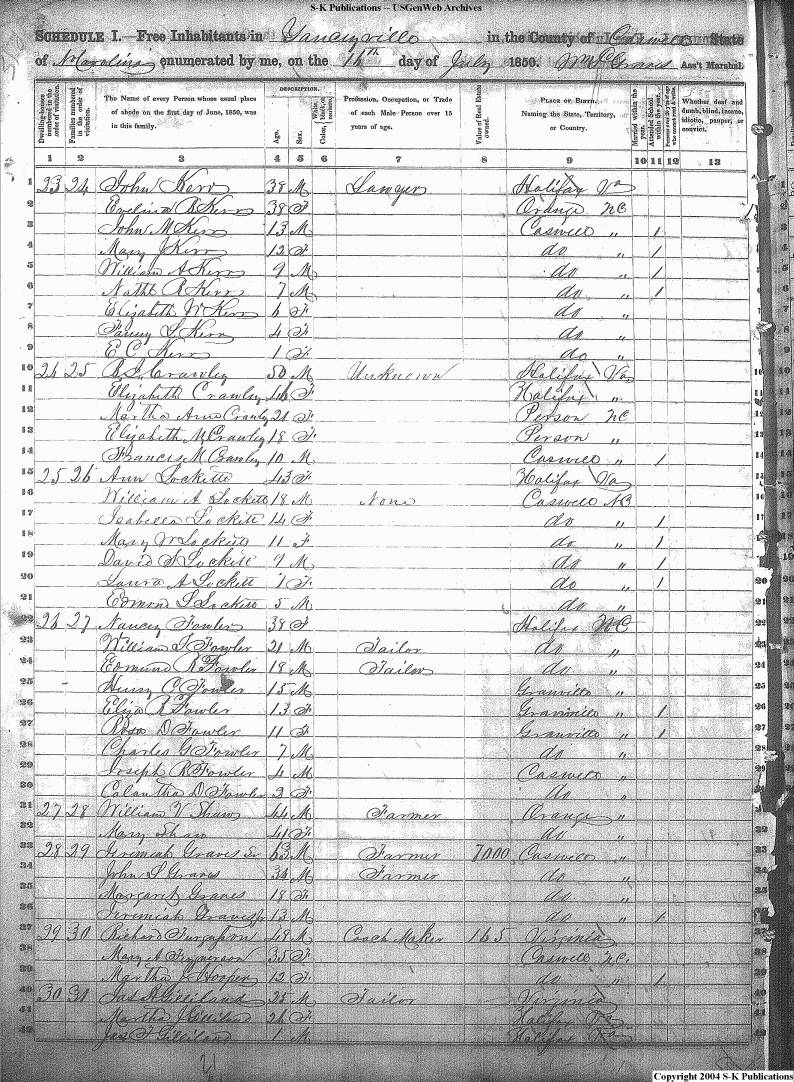 S-K Publications -- USGenWeb Archives
SCHEDULE I.—Free Inhabitants in Yanceyville in the County of Caswell State
of N Carolina enumerated by me, on the 16th day of July 1850. Wm P Graves Ass't Marshal.
Dwelling-houses numbered in the order of visitation.
Families numbered in the order of visitation.
The Name of every Person whose usual place of abode on the first day of June, 1850, was in this family.
DESCRIPTION.
Age.
Sex.
Color, White, black, or mulatto.
Profession, Occupation, or Trade of each Male Person over 15 years of age.
Value of Real Estate owned.
PLACE OF BIRTH. Naming the State, Territory, or Country.
Married within the year.
Attended School within the year.
Persons over 20 y'rs of age who cannot read & write.
Whether deaf and dumb, blind, insane, idiotic, pauper, or convict.
1 2 3 4 5 6 7 8 9 10 11 12 13
1 23 24 John Kerr 39 M Lawyer Halifax Va
2 Evelina B Kerr 38 F Orange NC
3 John M Kerr 13 M Caswell " 1
4 Mary J Kerr 12 F do " 1
5 William A Kerr 9 M do " 1
6 Nathl R Kerr 7 M do " 1
7 Elizabeth W Kerr 6 F do "
8 Fanny S Kerr 4 F do "
9 E C Kerr 1 F do "
10 24 25 Crawley 50 M Unknown Halifax Va
11 Elizabeth Crawley 46 F Halifax "
12 Martha Ann Crawley 21 F Person NC
13 Elizabeth M Crawley 18 F Person "
14 Francis M Crawley 10 M Caswell " 1
15 25 26 Ann Lockett 43 F Halifax Va
16 William A Lockett 18 M None Caswell NC
17 Isabella Lockett 14 F do " 1
18 Mary W Lockett 11 F do " 1
19 David S Lockett 9 M do " 1
20 Laura A Lockett 7 F do " 1
21 Edmond L Lockett 5 M do "
22 26 27 Nancy Fowler 38 F Halifax NC
23 William J Fowler 21 M Tailor do "
24 Edmund R Fowler 19 M Tailor do "
25 Henry C Fowler 15 M Granville "
26 Eliza R Fowler 13 F Granville " 1
27 Rosa D Fowler 11 F Granville " 1
28 Charles G Fowler 7 M do "
29 Joseph R Fowler 4 M Caswell "
30 Calantha D Fowler 2 F do "
31 27 28 William V Shaw 44 M Farmer Orange "
32 Mary Shaw 41 F do "
33 28 29 Jeremiah Graves Sr 63 M Farmer 7000 Caswell "
34 John S Graves 34 M Farmer do "
35 Margaret Graves 18 F do "
36 Jeremiah Graves Jr 13 M do " 1
37 29 30 Richard Furguson 48 M Coach Maker 165 Virginia
38 Mary A 35 F Caswell NC.
39 Martha J Hooper 12 F do " 1
40 30 31 Jas A Gilliland 25 M Tailor Virginia
41 Martha J Gilliland 26 F Halifax Va
42 Jas F Gilliland 1 M Halifax Va
Copyright 2004 S-K Publications